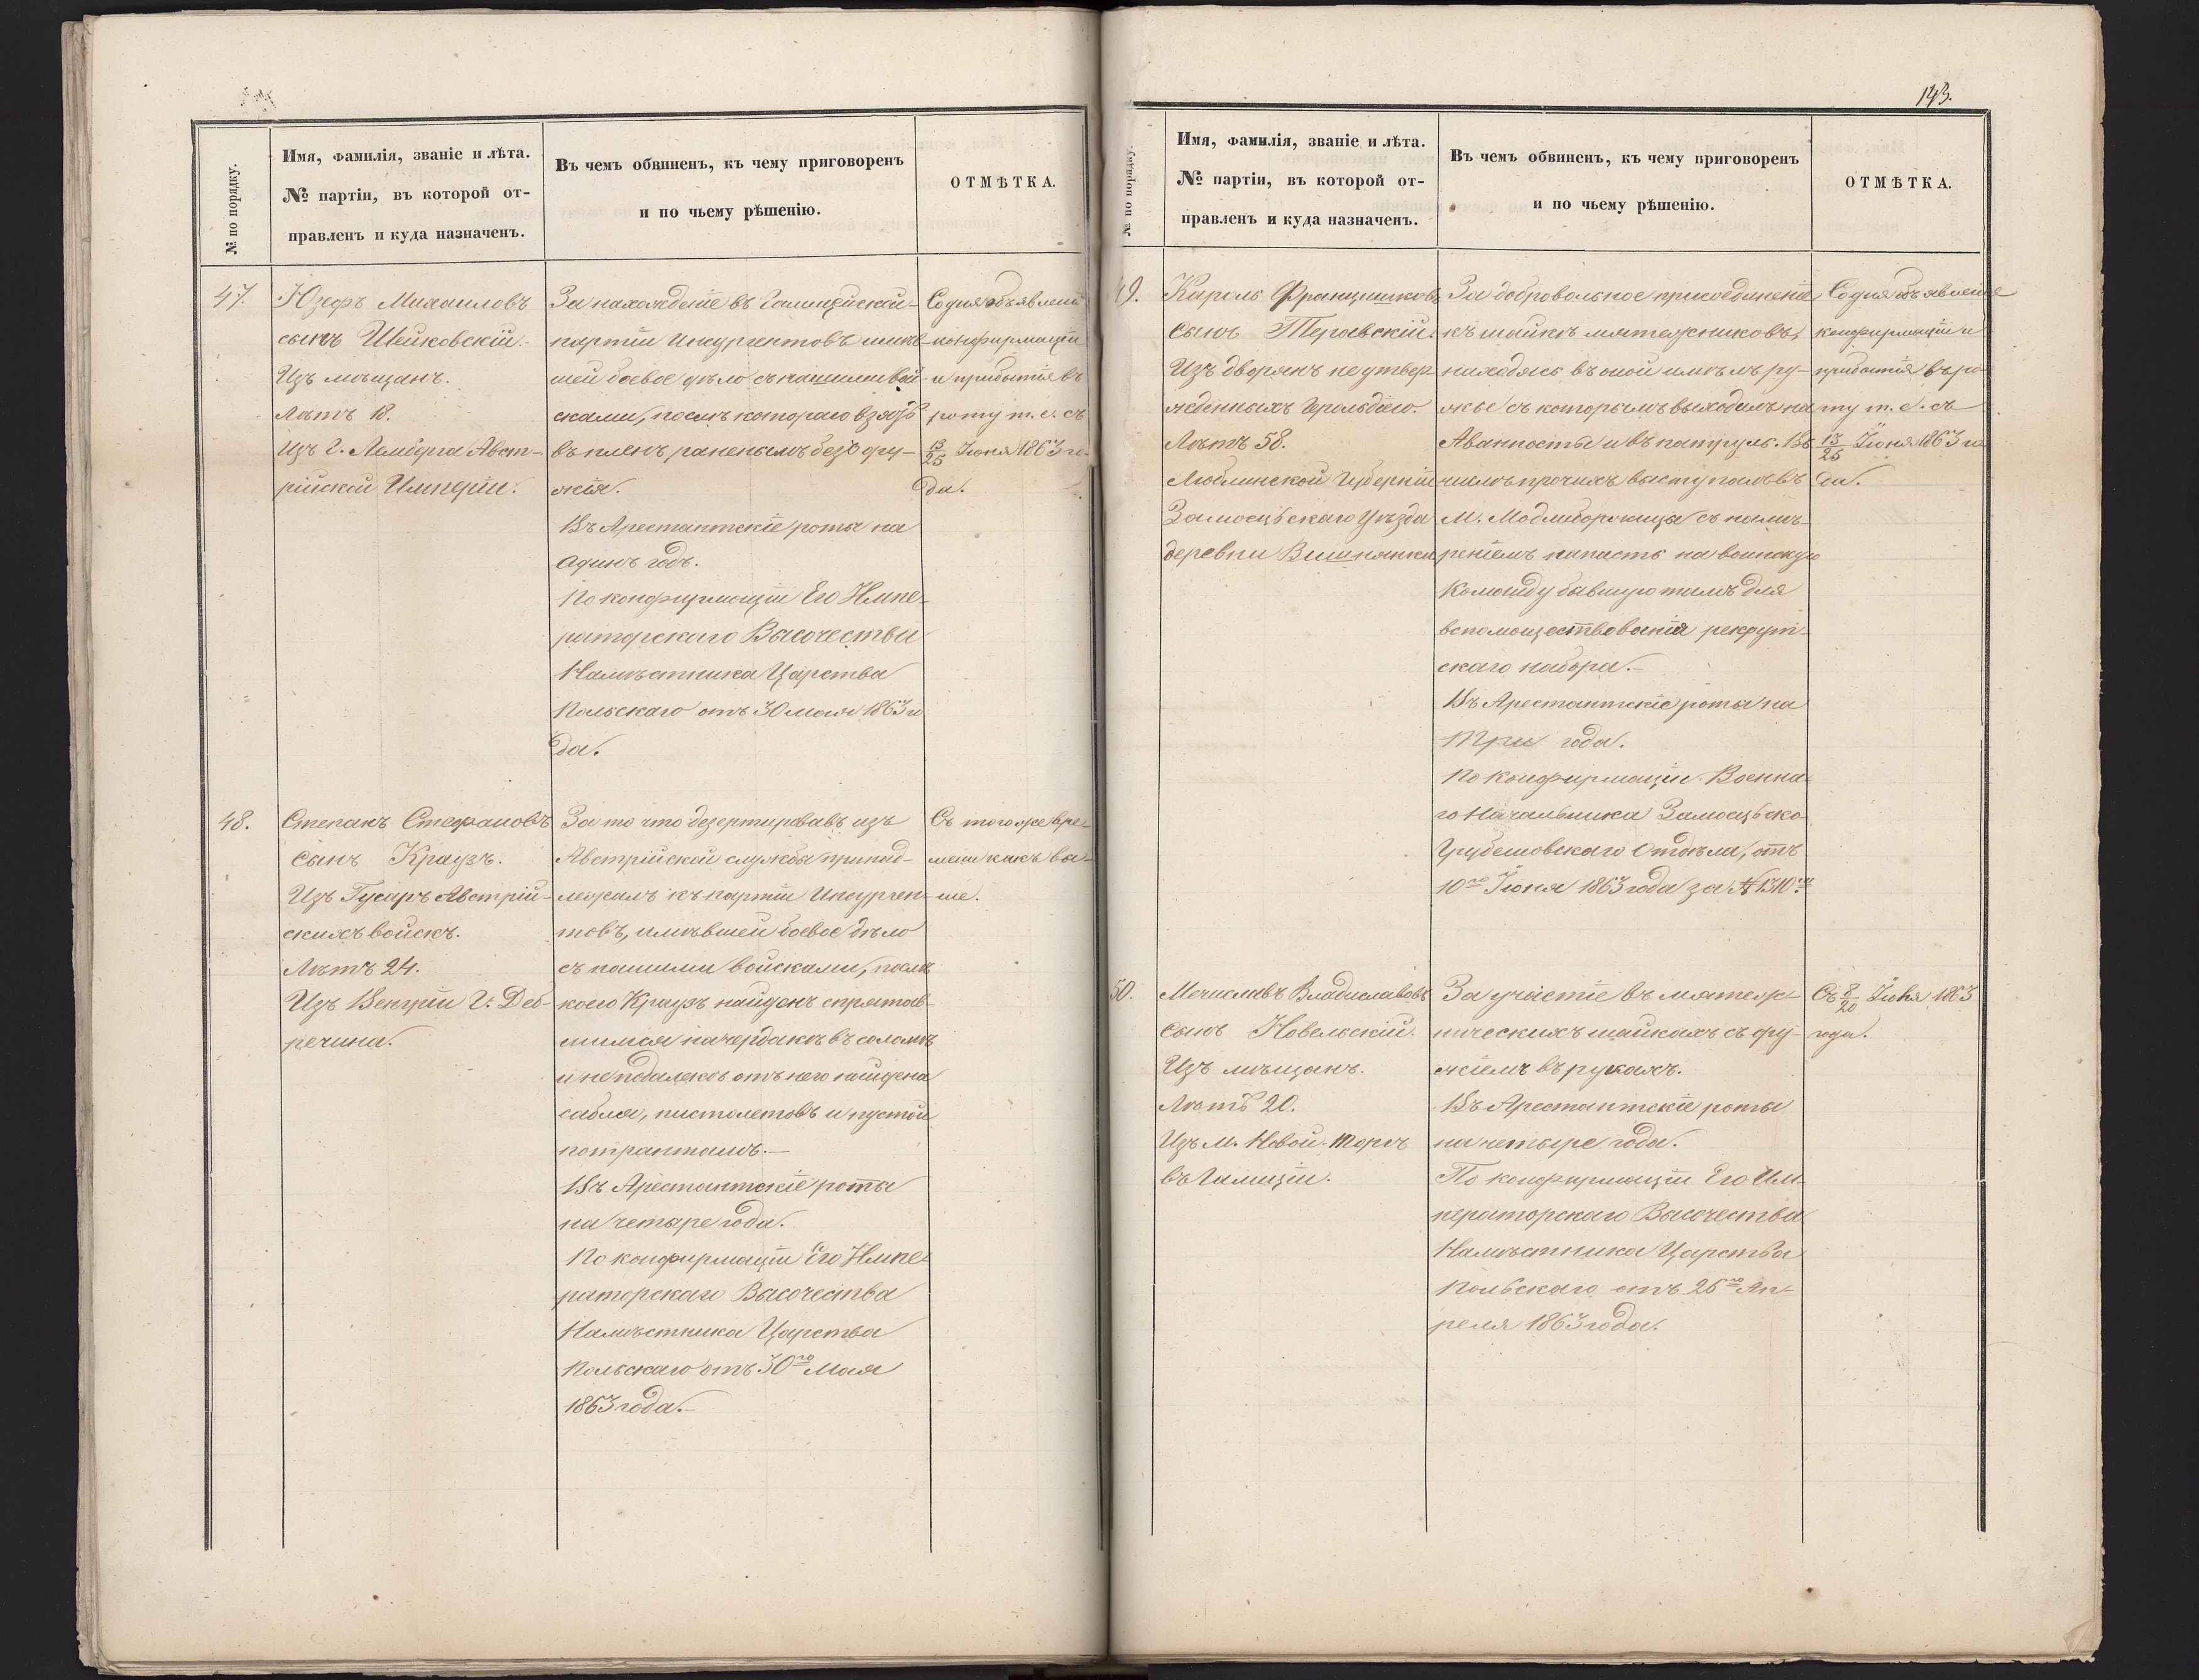 № по порядку.
Имя, фамилія, званіе и лѣта.
№ партіи, въ которой от-
правленъ и куда назначенъ.
Въ чемъ обвиненъ, къ чему приговоренъ
и по чьему рѣшенію.
ОТМѢТКА.
47.
Юзефъ Михаиловъ
сынъ Шейковскій.
Изъ мѣщанъ.
Лѣтъ 18.
Изъ г. Лемберга Авст-
рійской Имперіи.
За нахожденіе въ Галиційской
партіи Инсургентовъ имѣв-
шей боевое дѣло съ нашими вой-
сками, послѣ котораго взятъ
въ пленъ раненымъ безъ ору-
жія.
Въ Арестантскіе роты на
одинъ годъ.
По конфирмаціи Его Импе-
раторскаго Высочества
Намѣстника Царства
Польскаго отъ 30 мая 1863 го
да.
Со дня объявленія
конфирмаціи
и прибытія въ
роту т. е. съ
13/25 Іюня 1863 го-
да.
48.
Степанъ Стефановъ
сынъ Краузъ.
Изъ Гусаръ Австрій-
скихъ войскъ.
Лѣтъ 24.
Изъ Венгріи г. Деб-
речина.
За то что дезертировавъ изъ
Австрійской службы принад-
лежалъ къ партіи Инсурген-
товъ, имѣвшей боевое дѣло
съ нашими войсками, послѣ
коего Краузъ найденъ спрятав-
шимся на чердакѣ въ соломѣ
и неподалеко отъ него найдена
сабля, пистолетовъ и пустой
потранташъ.—
Въ Арестантскіе роты
на четыре года.
По конфирмаціи Его Импе-
раторскаго Высочества
Намѣстника Царства
Польскаго отъ 30го Мая
1863 года.—
Съ того же вре-
мени какъ вы-
ше.
143.
№ по порядку.
Имя, фамилія, званіе и лѣта.
№ партіи, въ которой от-
правленъ и куда назначенъ.
Въ чемъ обвиненъ, къ чему приговоренъ
и по чьему рѣшенію.
ОТМѢТКА.
49.
Кароль Францишковъ
сынъ Тераевскій.
Изъ дворянъ не утвер-
жденныхъ Герольдіею.
Лѣтъ 58.
Люблинской Губерніи
Замосцьскаго Уѣзда
деревни Вишнянки
За добровольное присоединеніе
къ шайкѣ мятежниковъ,
находясь въ оной имѣлъ ру-
жье съ которымъ выходилъ на
Аванпосты и въ патруль. Въ
числѣ прочихъ выступалъ въ
м. Модлиборжицы съ намѣ-
реніемъ напасть на воинскую
команду бывшую тамъ для
вспомоществованія рекрут-
скаго набора.—
Въ Арестантскіе роты на
три года.
По конфирмаціи Военна-
го Начальника Замосцьско-
Грубешовскаго Отдѣла, отъ
10го Іюня 1863 года за №1310мъ
Со дня объявленія
конфирмаціи и
прибытія въ ро-
ту т. е. съ
13/25 Іюня 1863 го
да.
50.
Мечиславъ Владиславовъ
сынъ Новельскій.
Изъ мѣщанъ.
Лѣтъ 20.
Изъ м. Новой-Торгъ
въ Галиціи.
За участіе въ мятеж-
ническихъ шайкахъ съ ору-
жіемъ въ рукахъ.
Въ Арестантскіе роты
на четыре года.
По конфирмаціи Его Им-
ператорскаго Высочества
Намѣстника Царства
Польскаго отъ 26го Ап-
реля 1863 года.
Съ 8/20 Іюня 1863
года.